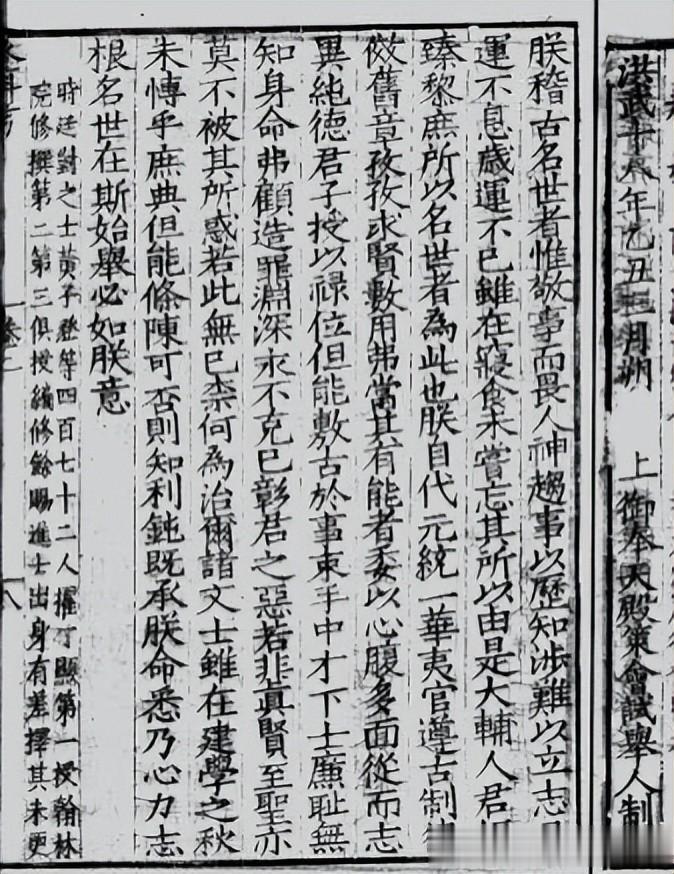 洪武十八年乙丑三月朔　上御奉天殿策會試舉人制
朕稽古名世者惟敬事而畏人神趨事以歷知涉難以立志
運不息歲運不已雖在寢食未嘗忘其所以由是大輔人君
臻黎庶所以名世者為此也朕自代元統一華夷官遵古制
倣舊章孜孜求賢數用弗當其有能者委以心腹多面從而志
異純德君子授以祿位但能敷古於事束手中才下士廉恥無
知身命弗顧造罪淵深永不克已彰君之惡若非真賢至聖亦
莫不被其所惑若此無已柰何為治爾諸文士雖在建學之秋
未慱乎庶典但能條陳可否則知利鈍既承朕命悉乃心力志
根名世在斯始舉必如朕意
時廷對之士黃子澄等四百七十二人擢丁顯第一授翰林
院修撰第二第三俱授編修餘賜進士出身有差擇其未更
卷二
八